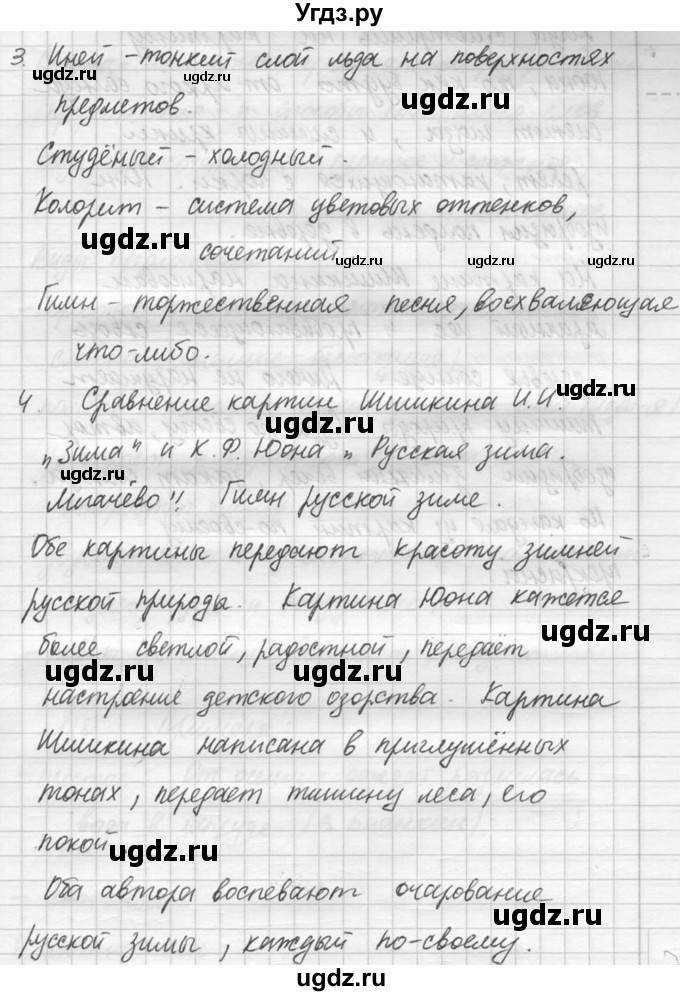 Угдз.ру
3. Иней – тонкий слой льда на поверхностях
ugdz.ru ugdz.ru
предметов.
ugdz.ru
Студёный – холодный.
Колорит – система цветовых оттенков,
ugdz.ru
сочетаний
ugdz.ru ugdz.ru ugdz.ru
Гимн – торжественная песня, восхваляющая
что-либо.
ugdz.ru
4. Сравнение картин Шишкина И.И.
ugdz.ru
„Зима" и К.Ф. Юона „Русская зима.
ugdz.ru
Лигачёво". Гимн русской зиме.
Обе картины передают красоту зимней
русской природы. Картина Юона кажется
ugdz.ru
более светлой, радостной, передаёт
ugdz.ru ugdz.ru
настроение детского озорства. Картина
Шишкина написана в приглушённых
тонах, передает тишину леса, его
покой
ugdz.ru
Оба автора воспевают очарование
ugdz.ru
русской зимы, каждый по-своему.
ugdz.ru
ugdz.ru